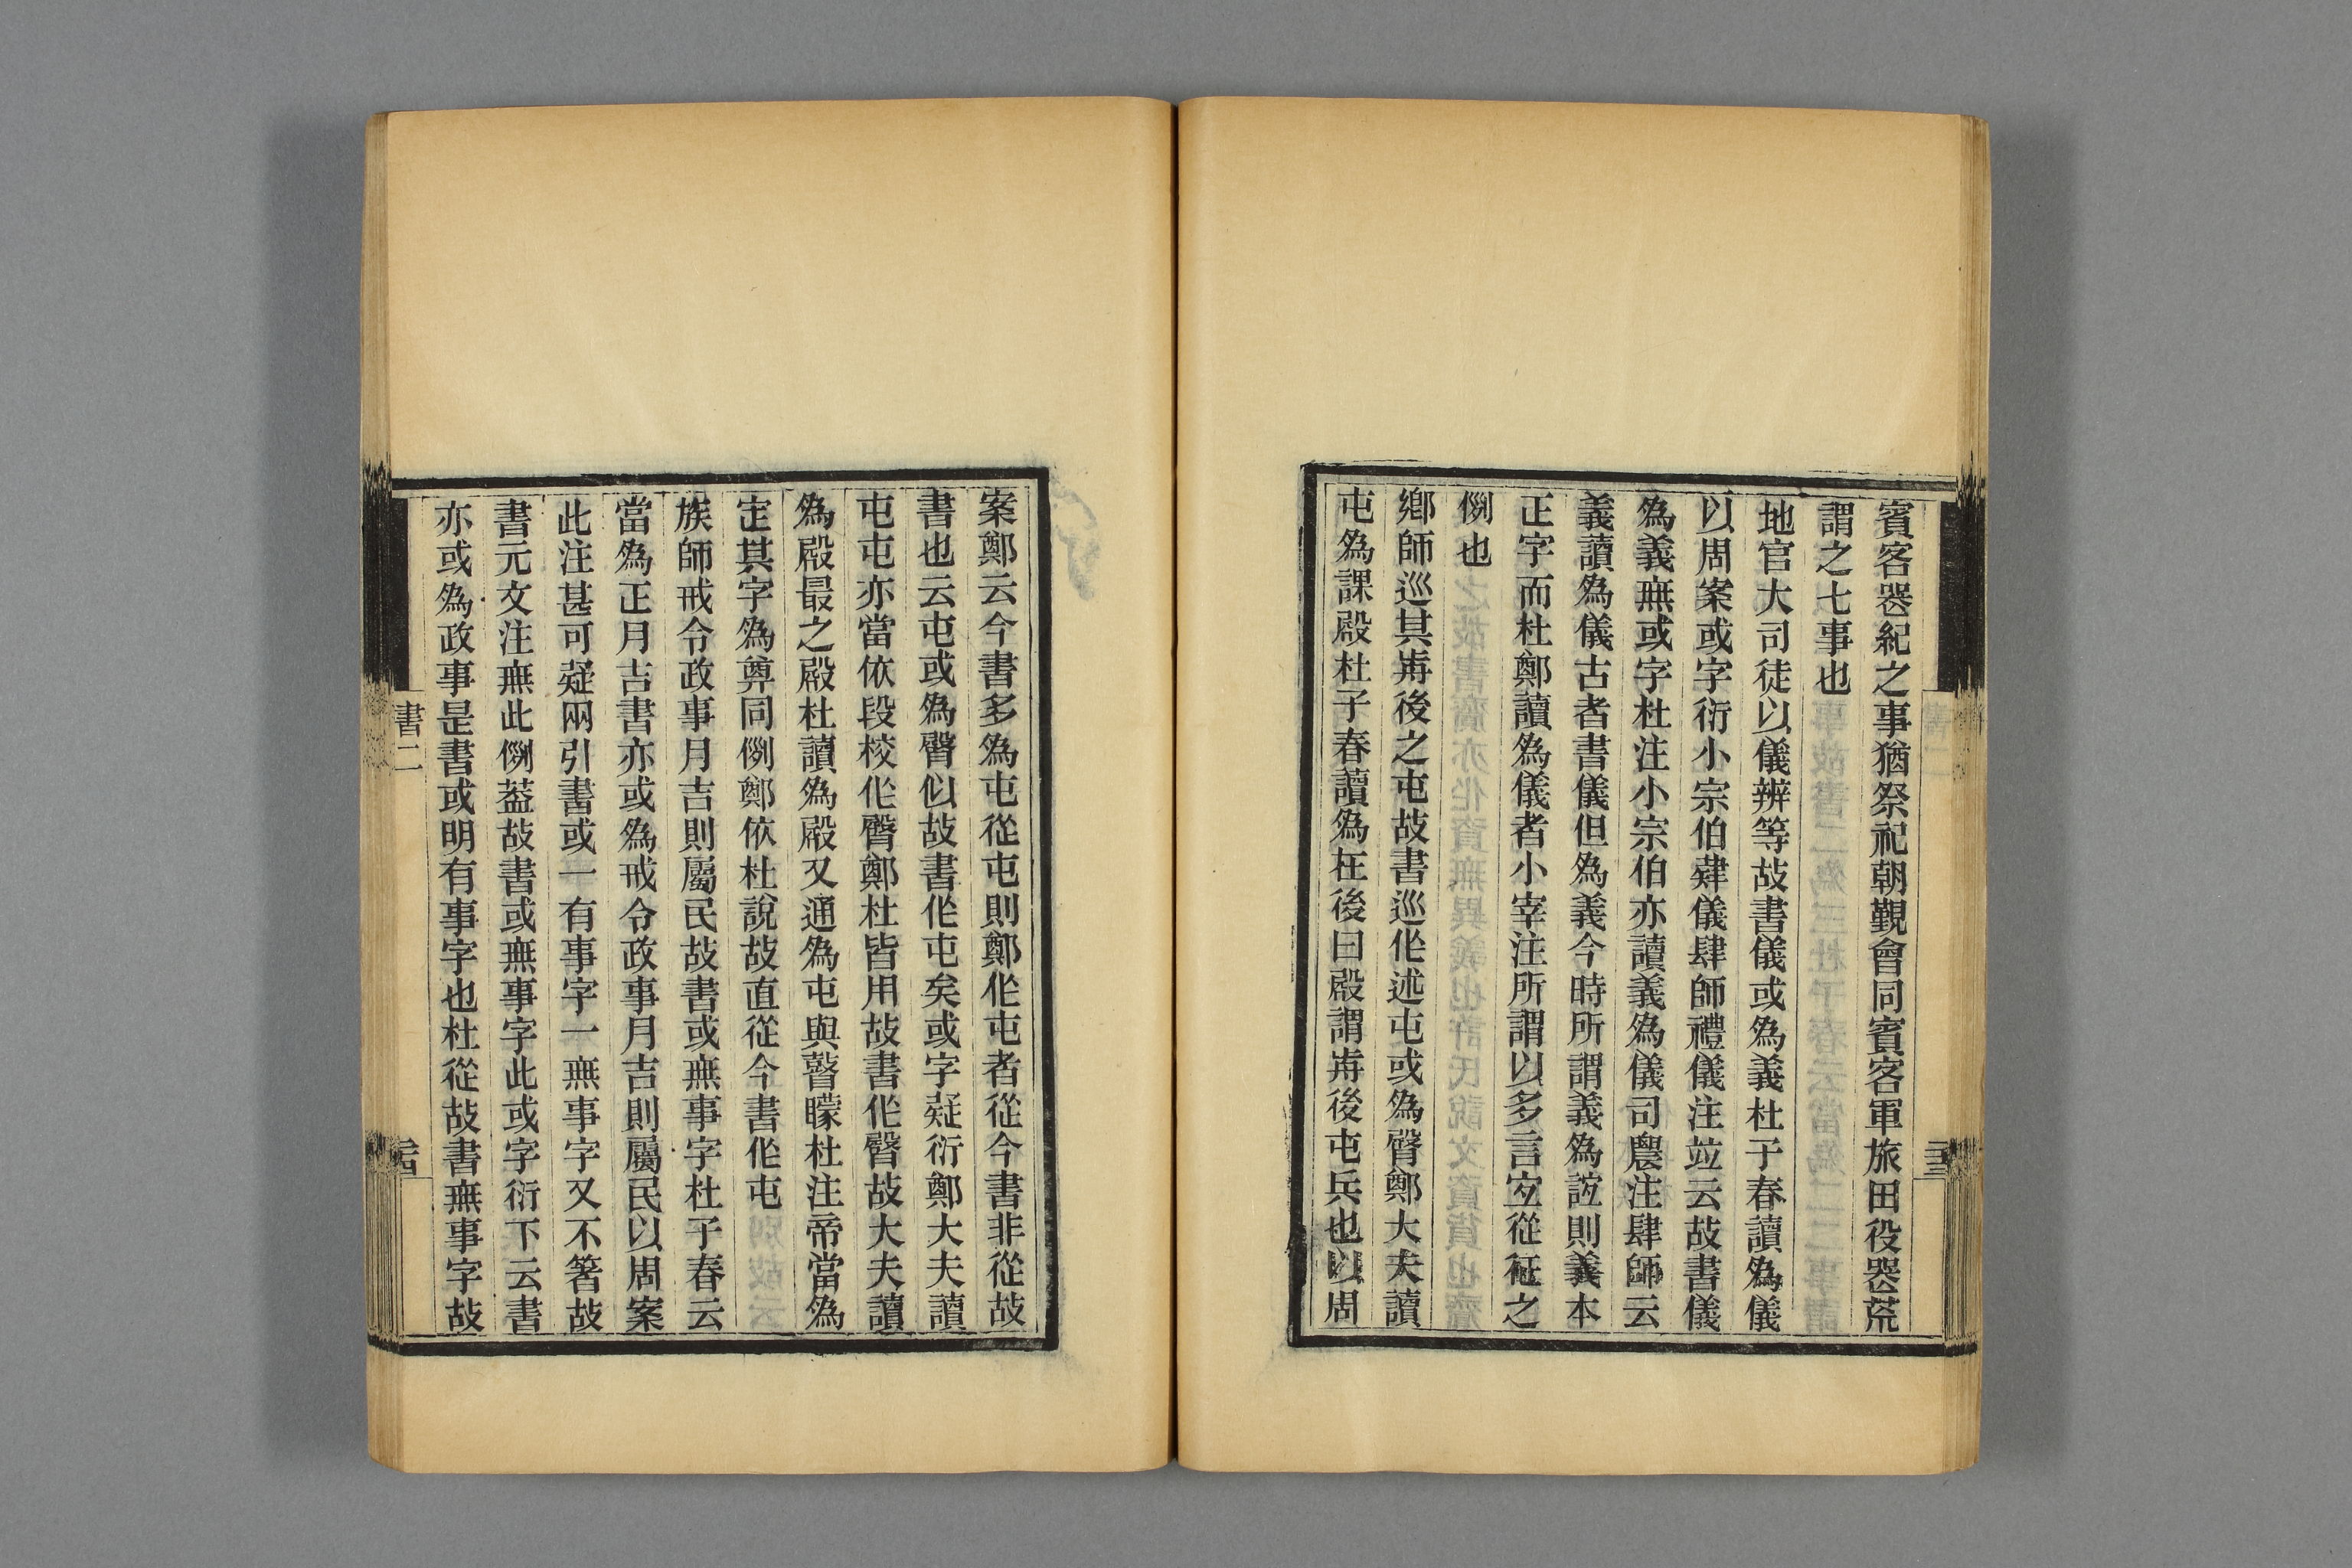 賓客器紀之事猶祭祀朝覲會同賓客軍旅田役器荒
謂之七事也
地官大司徒以儀辨等故書儀或為義杜子春讀為儀
以周案或字衍小宗伯肄儀肆師禮儀注竝云故書儀
為義無或字杜注小宗伯亦讀義為儀司農注肆師云
義讀為儀古者書儀但為義今時所謂義為誼則義本
正字而杜鄭讀為儀者小宰注所謂以多言宜從征之
例也
鄉師巡其歬後之屯故書巡作述屯或為臀鄭大夫讀
屯為課殿杜子春讀為在後曰殿謂歬後屯兵也以周
案鄭云今書多為屯從屯則鄭作屯者從今書非從故
書也云屯或為臀似故書作屯矣或字疑衍鄭大夫讀
屯屯亦當依段校作臀鄭杜皆用故書作臀故大夫讀
為殿最之殿杜讀為殿又通為屯與瞽矇杜注帝當為
定其字為奠同例鄭依杜說故直從今書作屯
族師戒令政事月吉則屬民故書或無事字杜子春云
當為正月吉書亦或為戒令政事月吉則屬民以周案
此注甚可疑兩引書或一有事字一無事字又不箸故
書元文注無此例葢故書或無事字此或字衍下云書
亦或為政事是書或明有事字也杜從故書無事字故
書二